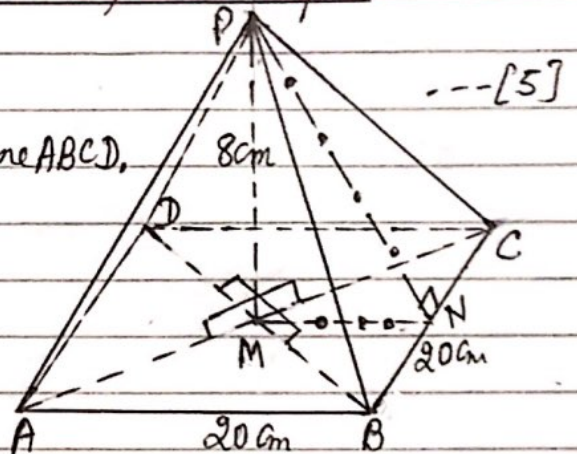 P
---[5]
ne ABCD.
8cm
D
C
M
N
20cm
A
20cm
B